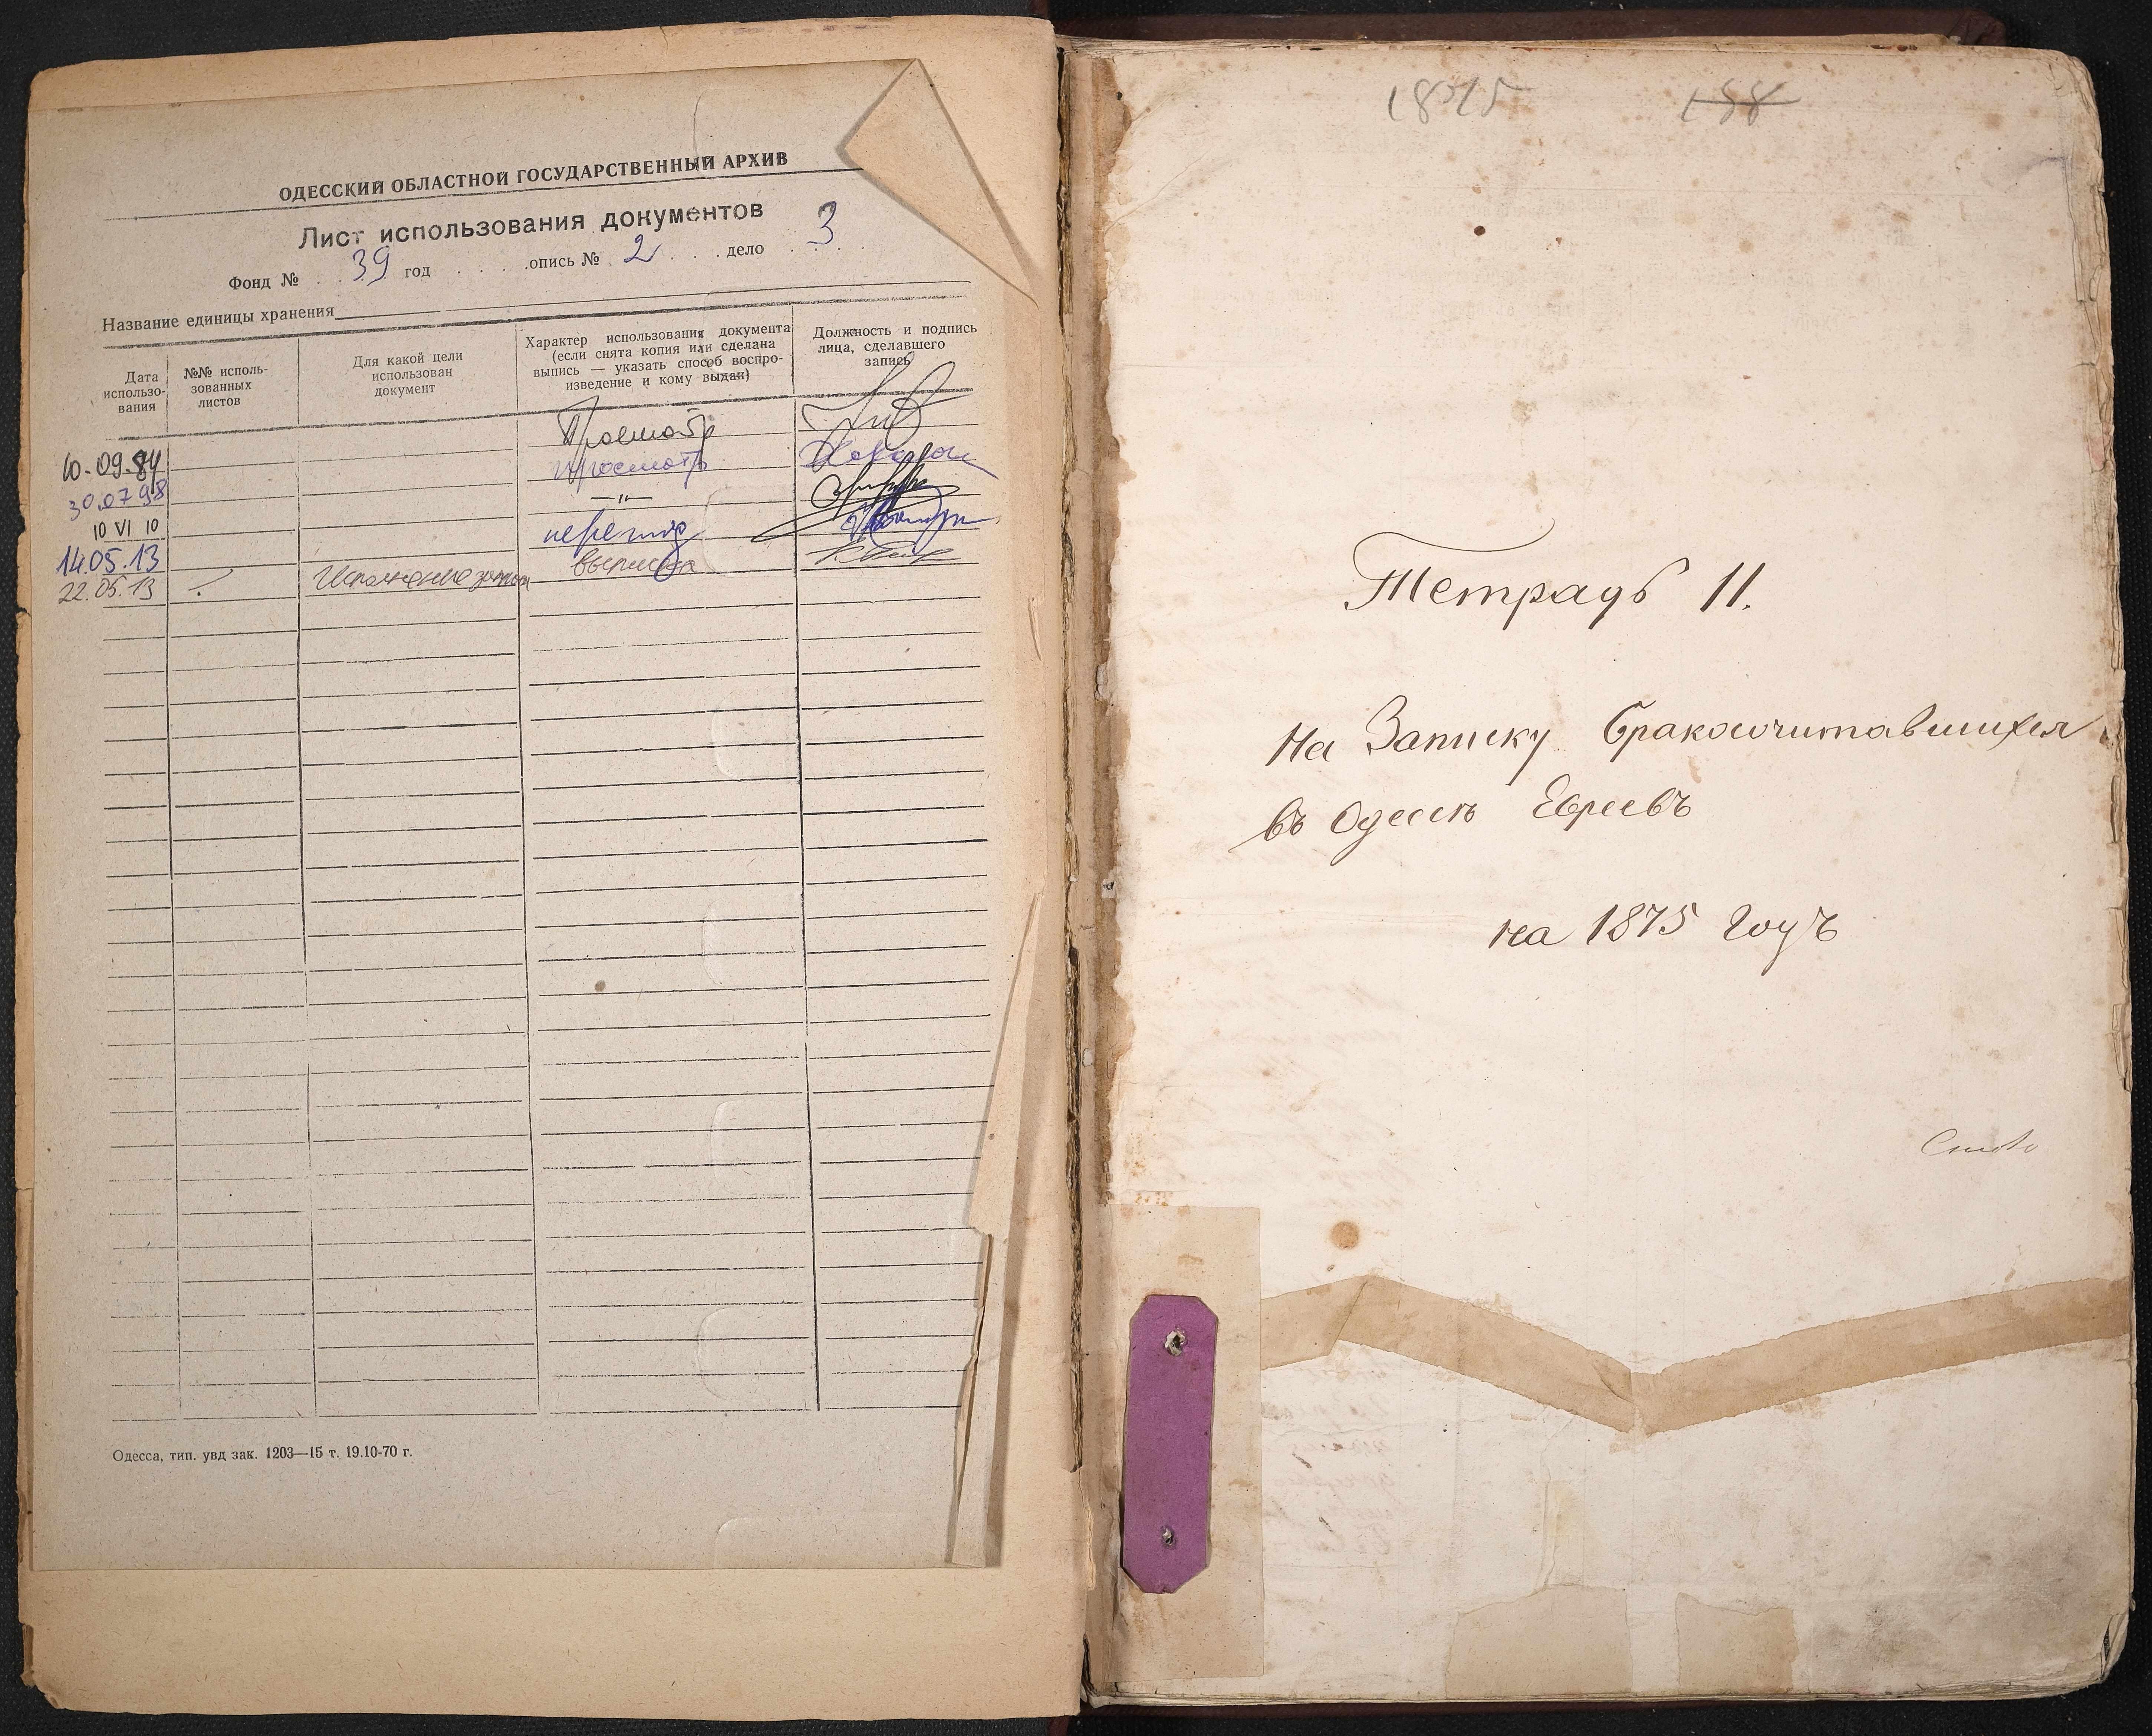 ОДЕССКИЙ ОБЛАСТНОЙ ГОСУДАРСТВЕННЫЙ АРХИВ
Лист использования документов
Фонд № 39 год опись № 2 дело 3
Название единицы хранения
Дата использо-вания
№№ исполь-зованных листов
Для какой цели использован документ
Характер использования документа (если снята копия или сделана выпись — указать способ воспро-изведение и кому выдан)
Должность и подпись лица, сделавшего запись
10.09.84 Просмотр
30.07 98 просмотр
10 VI 10 —"—
14.05.13
22.05.13 Исполнение выписка
Одесса, тип. увд зак. 1203—15 т. 19.10-70 г.
1875 158
Тетрадь 11.
На Записку бракосочитавшихся
въ Одессѣ Евреевъ
на 1875 годъ